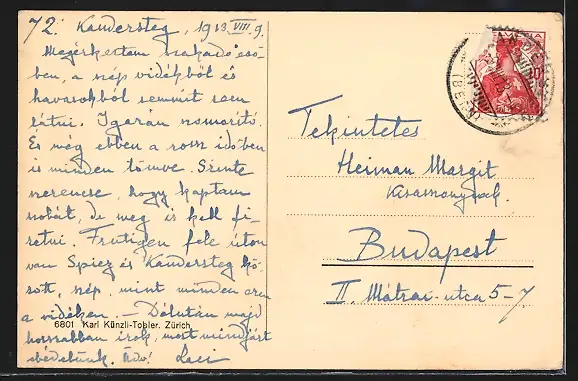 72. Kandersteg, 1913 VIII. 9.
Megérkeztem szakadó eső-
ben, a szép vidékből és
havasokból semmit sem
látni. Igazán szomorító.
És még ebben a rossz időben
is minden tömve. Szinte
szerencse, hogy kaptam
szobát, de meg is kell fi-
zetni. Frutigen fele úton
van Spiez és Kandersteg kö-
zött, szép, mint minden ezen
a vidéken. — Délután majd
hosszabban írok, most mindjárt
ebédelünk. Laci
6801 Karl Künzli-Tobler, Zürich
Tekintetes
Heiman Margit
kisasszonynak.
Budapest
II. Mátrai-utca 5-7